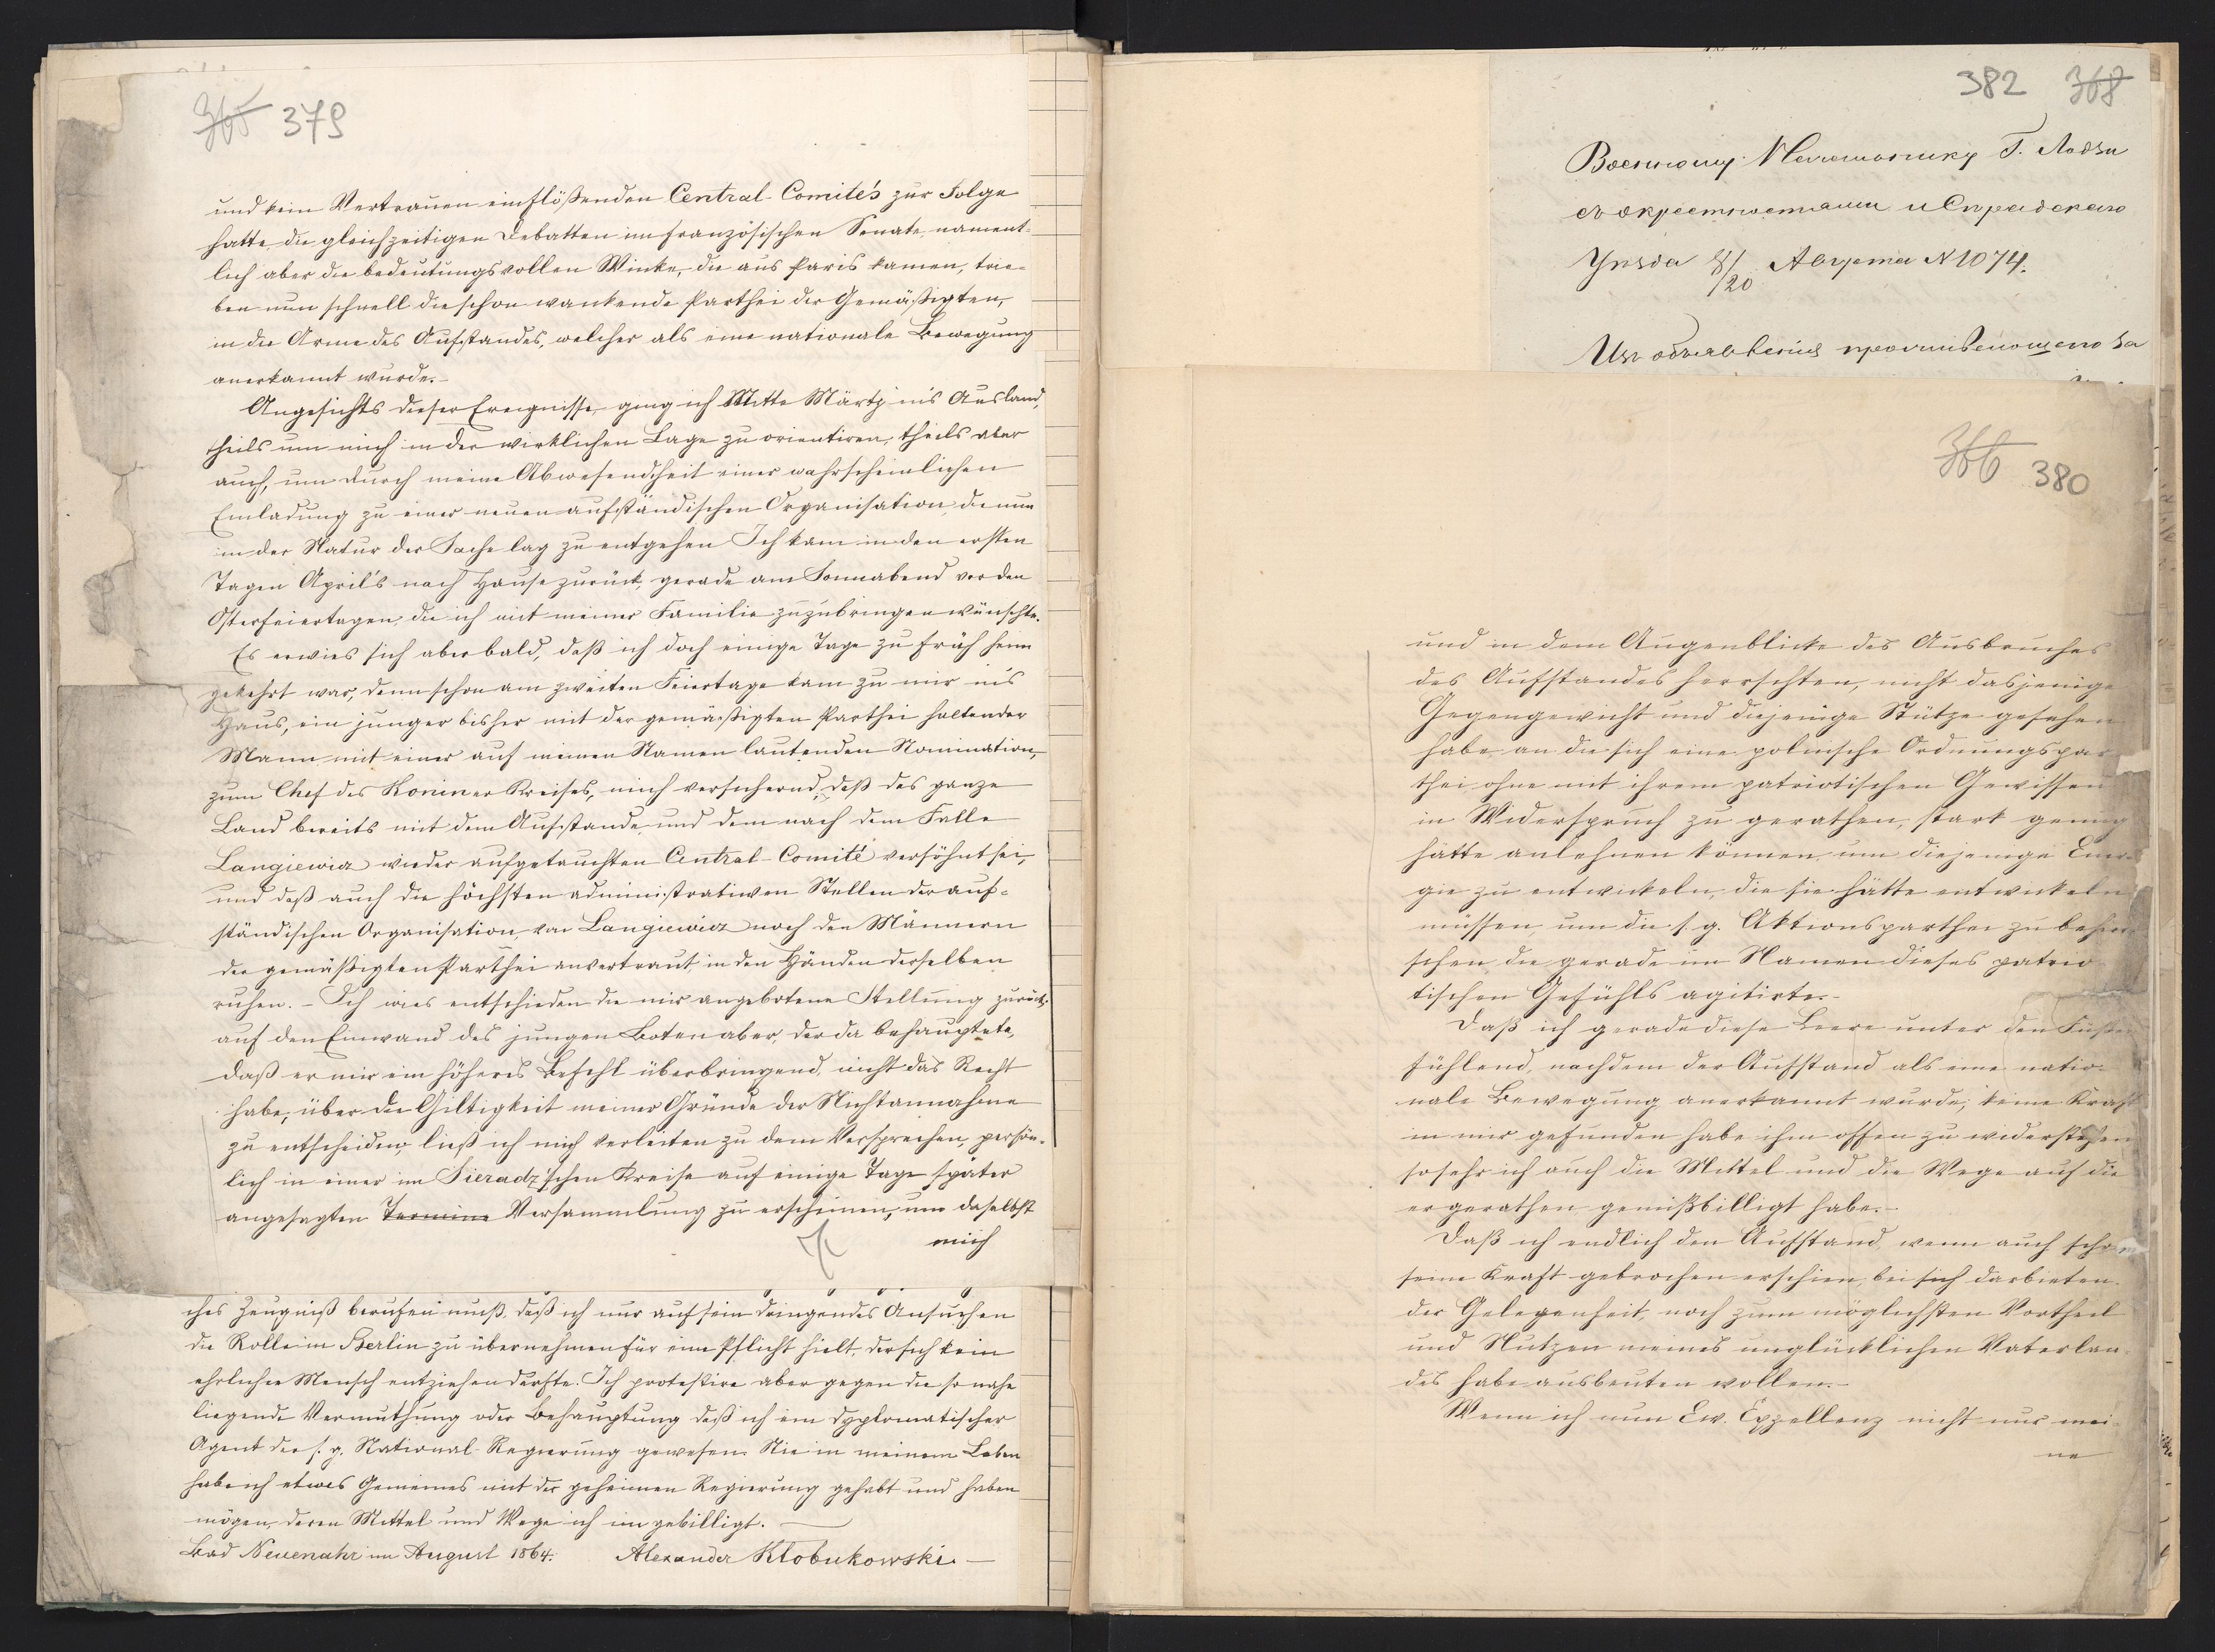 365 379
und kein Vertrauen einflößenden Central-Comité's zur Folge
hatte, die gleichzeitigen Debatten im französischen Senate, nament-
lich aber die bedeutungsvollen Winke, die aus Paris kamen, trie-
ben nun schnell die schon wankende Parthei der Gemäßigten,
in die Arme des Aufstandes, welcher als eine nationale Bewegung
anerkannt wurde.-
Angesichts dieser Ereignisse ging ich Mitte Märtz in's Ausland,
theils um mich in der wirklichen Lage zu orientiren, theils aber
auch, um durch meine Abwesendheit einer wahrscheinlichen
Einladung zu einer neuen aufständischen Organisation, die nun
in der Natur der Sache lag zu entgehen Ich kam in den ersten
Tagen April's nach Hause zurück, gerade am Sonnabend vor den
Osterfeiertagen, die ich mit meiner Familie zuzubringen wünschte.
Es erwies sich aber bald, daß ich doch einige Tage zu früh heim
gekehrt war, denn schon am zweiten Feiertage kam zu mir in's
Haus, ein junger bisher mit der gemäßigten Parthei haltender
Mann mit einer auf meinen Namen lautenden Nomination,
zum Chef des Koniner Kreises, mich versichernd, daß das ganze
Land bereits mit dem Aufstande und dem nach dem Falle
Langiewicz wieder aufgetauchten Central-Comité versöhnt sei,
und daß auch die höchsten administrativen Stellen der auf-
ständischen Organisation, von Langiewicz noch den Männern
der gemäßigten Parthei anvertraut, in den Händen derselben
ruhen. - Ich wies entschieden die mir angebotene Stellung zurück;
auf den Einwand des jungen Boten aber, der da behauptete,
daß er mir ein höheres Befehl überbringend, nicht das Recht
habe, über die Giltigkeit meiner Gründe der Nichtannahme
zu entscheiden, ließ ich mich verleiten zu dem Versprechen, persön-
lich in einer im Sieradz'schen Kreise auf einige Tage später
angesagten Termine Versammlung zu erscheinen, um daselbst
mich
ches Zeugniß berufen muß, daß ich nur auf sein dringendes Ansuchen
die Rolle in Berlin zu übernehmen für eine Pflicht hielt, der sich kein
ehrlicher Mensch entziehen durfte. Ich protestire aber gegen die so nahe
liegende Vermuthung oder Behauptung daß ich ein dyplomatischer
Agent der s. g. National-Regierung gewesen. Nie in meinem Leben
habe ich etwas Gemeines mit der geheimen Regierung gehabt und haben
mögen, deren Mittel und Wege ich nie gebilligt.
Bad Neuenahr im August 1864. Alexander Kłobukowski.-
382 368
Военному Начальнику Г. Лодзи
съ окрестностями и Сѣрадскаго
Уѣзда 8/20 Августа N 1074.
366 380
und in dem Augenblicke des Ausbruches
des Aufstandes herrschten, nicht dasjenige
Gegengewicht und diejenige Stütze gesehen
habe, an die sich eine polnische Ordnungspar
thei ohne mit ihrem patriotischen Gewissen
in Widerspruch zu gerathen, stark genug
hätte anlehnen können, um diejenige Ener-
gie zu entwickeln, die sie hätte entwickeln
müssen, um die s. g. Aktionsparthei zu beherr-
schen, die gerade im Namen dieses patrio
tischen Gefühls agitirte.-
Daß ich gerade diese Leere unter den Füßen
fühlend, nachdem der Aufstand als eine natio-
nale Bewegung anerkannt wurde; keine Kraft
in mir gefunden habe ihm offen zu widerstehen
so sehr ich auch die Mittel und die Wege auf die
er gerathen gemißbilligt habe.-
Daß ich endlich den Aufstand, wenn auch schon
seine Kraft gebrochen erschien, bei sich darbieten-
der Gelegenheit, noch zum möglichsten Vortheil
und Nutzen meines unglücklichen Vaterlan-
des habe ausbeuten wollen.-
Wenn ich nun Ew. Exzellenz nicht nur mei-
ne